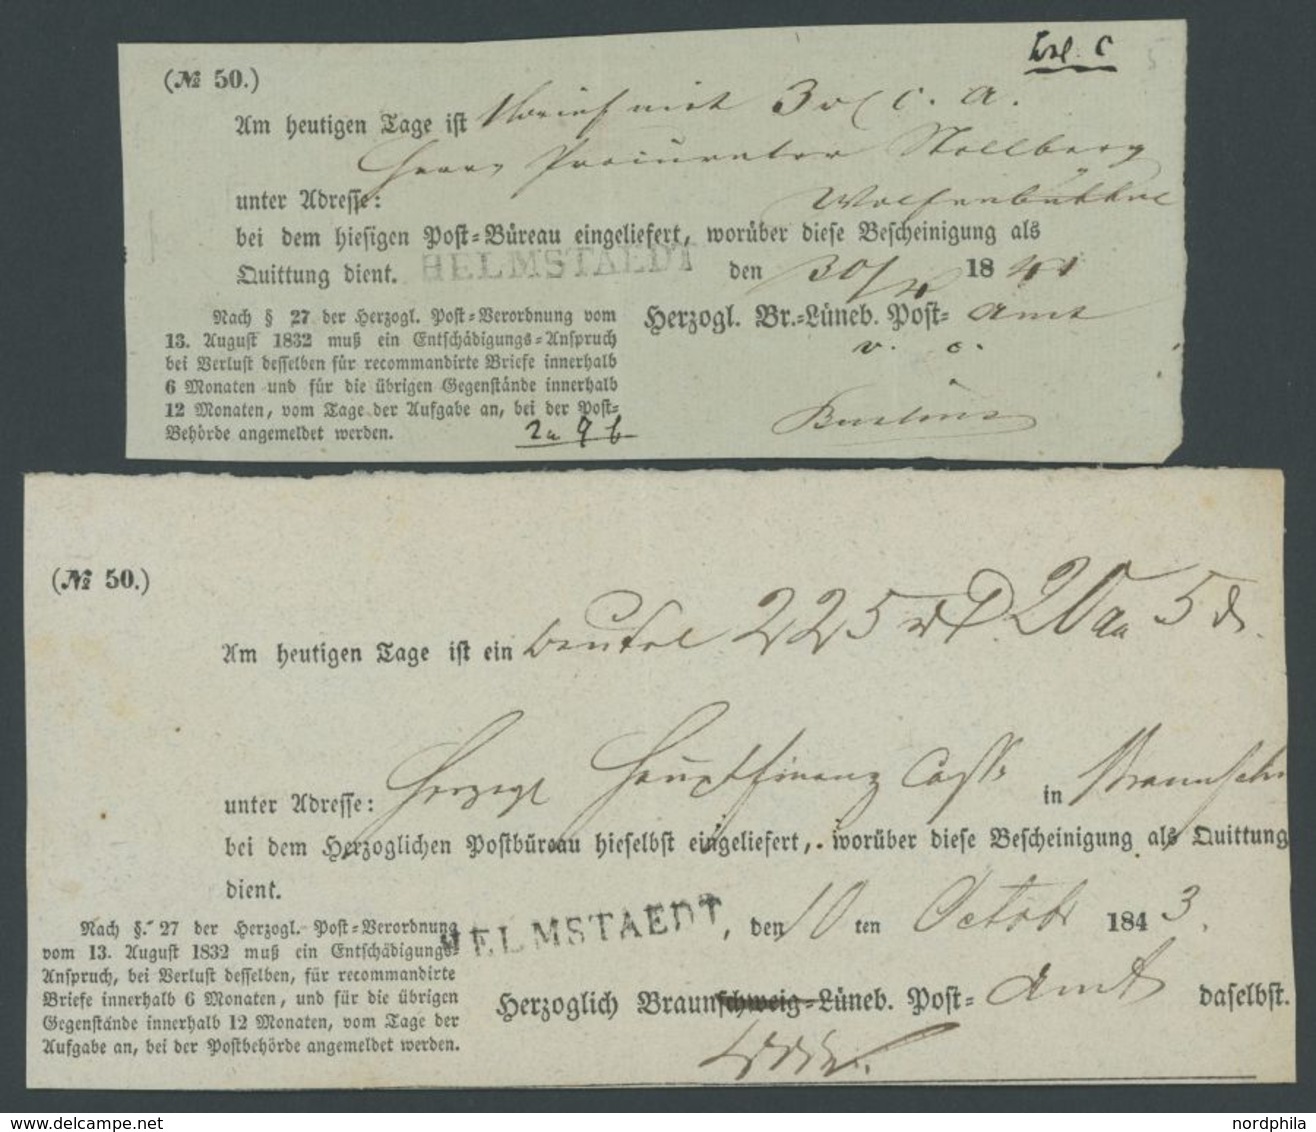 (№ 50.)
Am heutigen Tage ist 1 Brief mit 3 c. a.
Herrn Procurator Stollberg
unter Adresse: Wolfenbüttel
bei dem hiesigen Post-Büreau eingeliefert, worüber diese Bescheinigung als
Quittung dient. HELMSTAEDT den 30/ 1841
Nach § 27 der Herzogl. Post-Verordnung vom
13. August 1832 muß ein Entschädigungs-Anspruch
bei Verlust desselben für recommandirte Briefe innerhalb
6 Monaten und für die übrigen Gegenstände innerhalb
12 Monaten, vom Tage der Aufgabe an, bei der Post-
Behörde angemeldet werden.
Herzogl. Br.-Lüneb. Post- Amt
v. c.
(№ 50.)
Am heutigen Tage ist ein Beutel 225 20 5
unter Adresse: Herzogl Hauptfinanz Casse in Braunschw
bei dem Herzoglichen Postbüreau hieselbst eingeliefert, worüber diese Bescheinigung als Quittung
dient.
HELMSTAEDT, den 10 ten October 1843.
Nach §. 27 der Herzogl. Post-Verordnung
vom 13. August 1832 muß ein Entschädigungs-
Anspruch, bei Verlust desselben, für recommandirte
Briefe innerhalb 6 Monaten, und für die übrigen
Gegenstände innerhalb 12 Monaten, vom Tage der
Aufgabe an, bei der Postbehörde angemeldet werden.
Herzoglich Braunschweig-Lüneb. Post- Amt daselbst.
www.ansichtskartenversand.com
nordphila